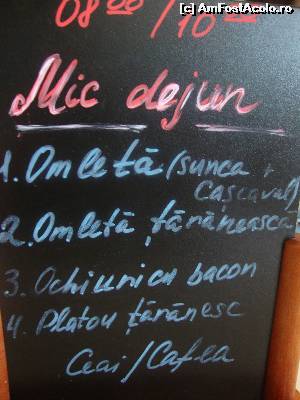 (c) AmFostAcolo.ro
08 00 / 10 00
Mic dejun
1. Omletă (sunca +
Cascaval)
2. Omletă țărănească
3. Ochiuri cu bacon
4. Platou țărănesc
Ceai / Cafea